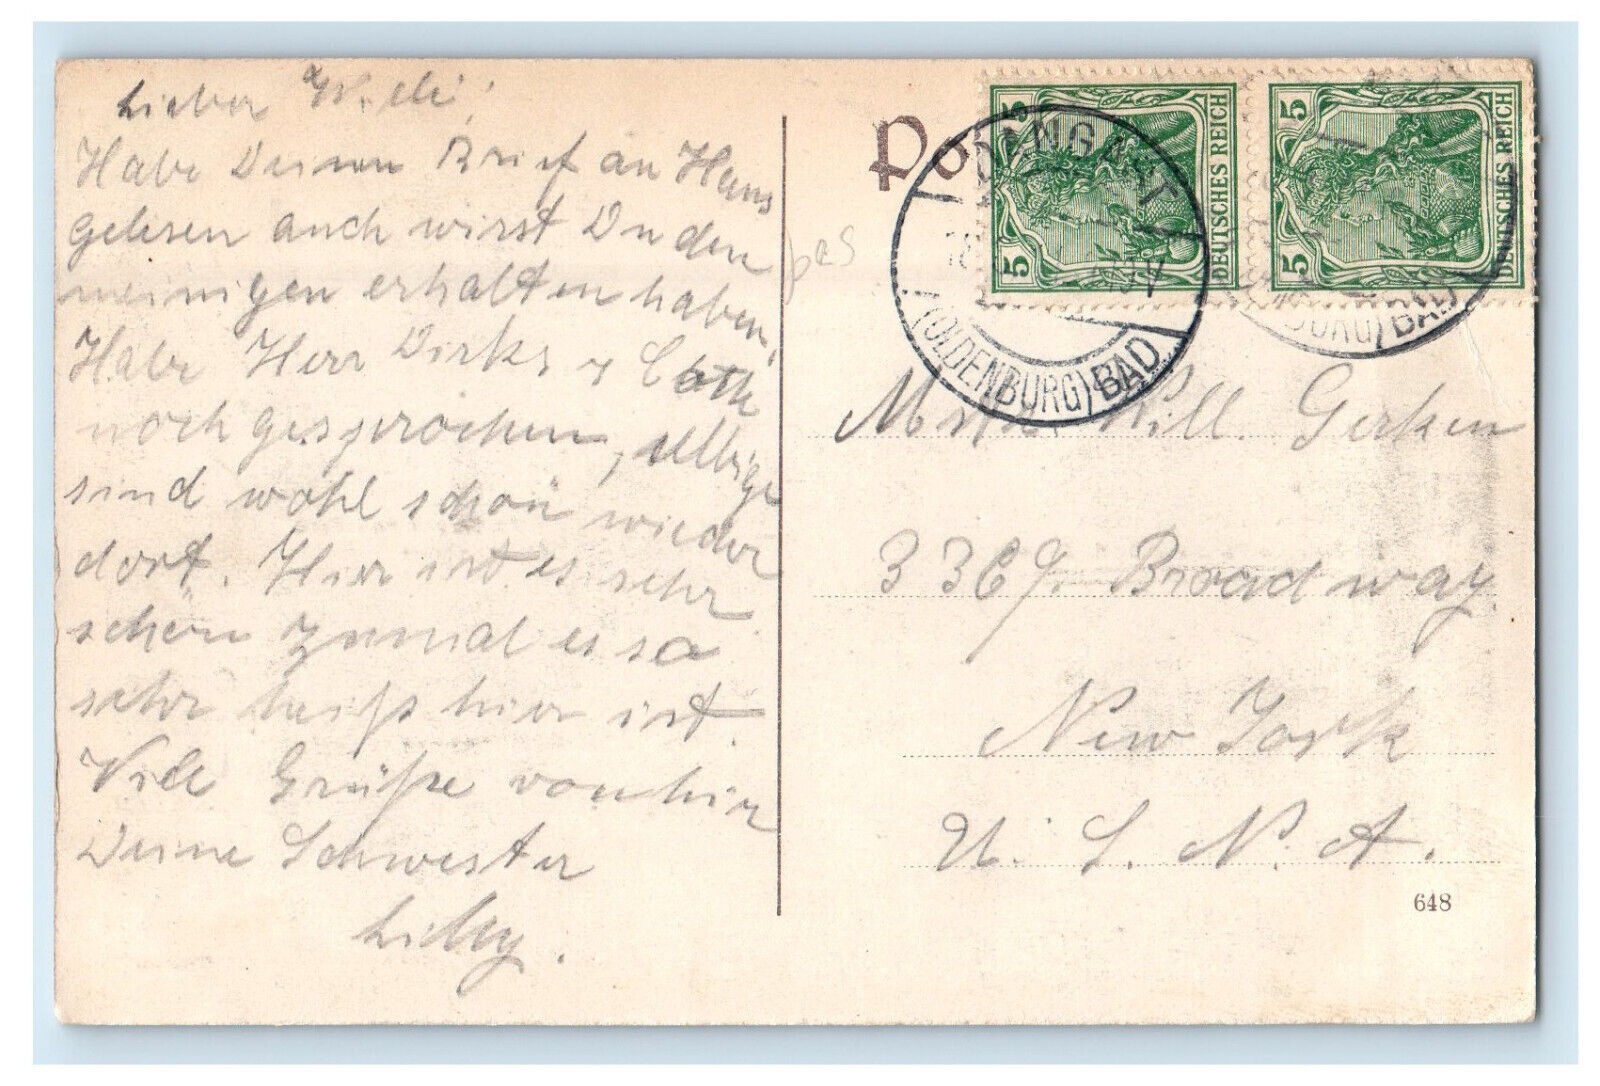 Lieber Willi!
Habe Deinen Brief an Hans
gelesen auch wirst Du den
meinigen erhalten haben,
Habe Herr Dirks &
noch gesprochen, selbige
sind wohl schon wieder
dort. Hier ist es sehr
schön zumal es so
sehr heiß hier ist.
Viele Grüße von hier
Deine Schwester
Lilly.
pcs
Po
5 5 DEUTSCHES REICH
5 5 DEUTSCHES REICH
DANGAST
(OLDENBURG) BAD
BURG) BAD
Mister Will. Gerken
3369. Broadway.
New York
U. S. N. A.
648